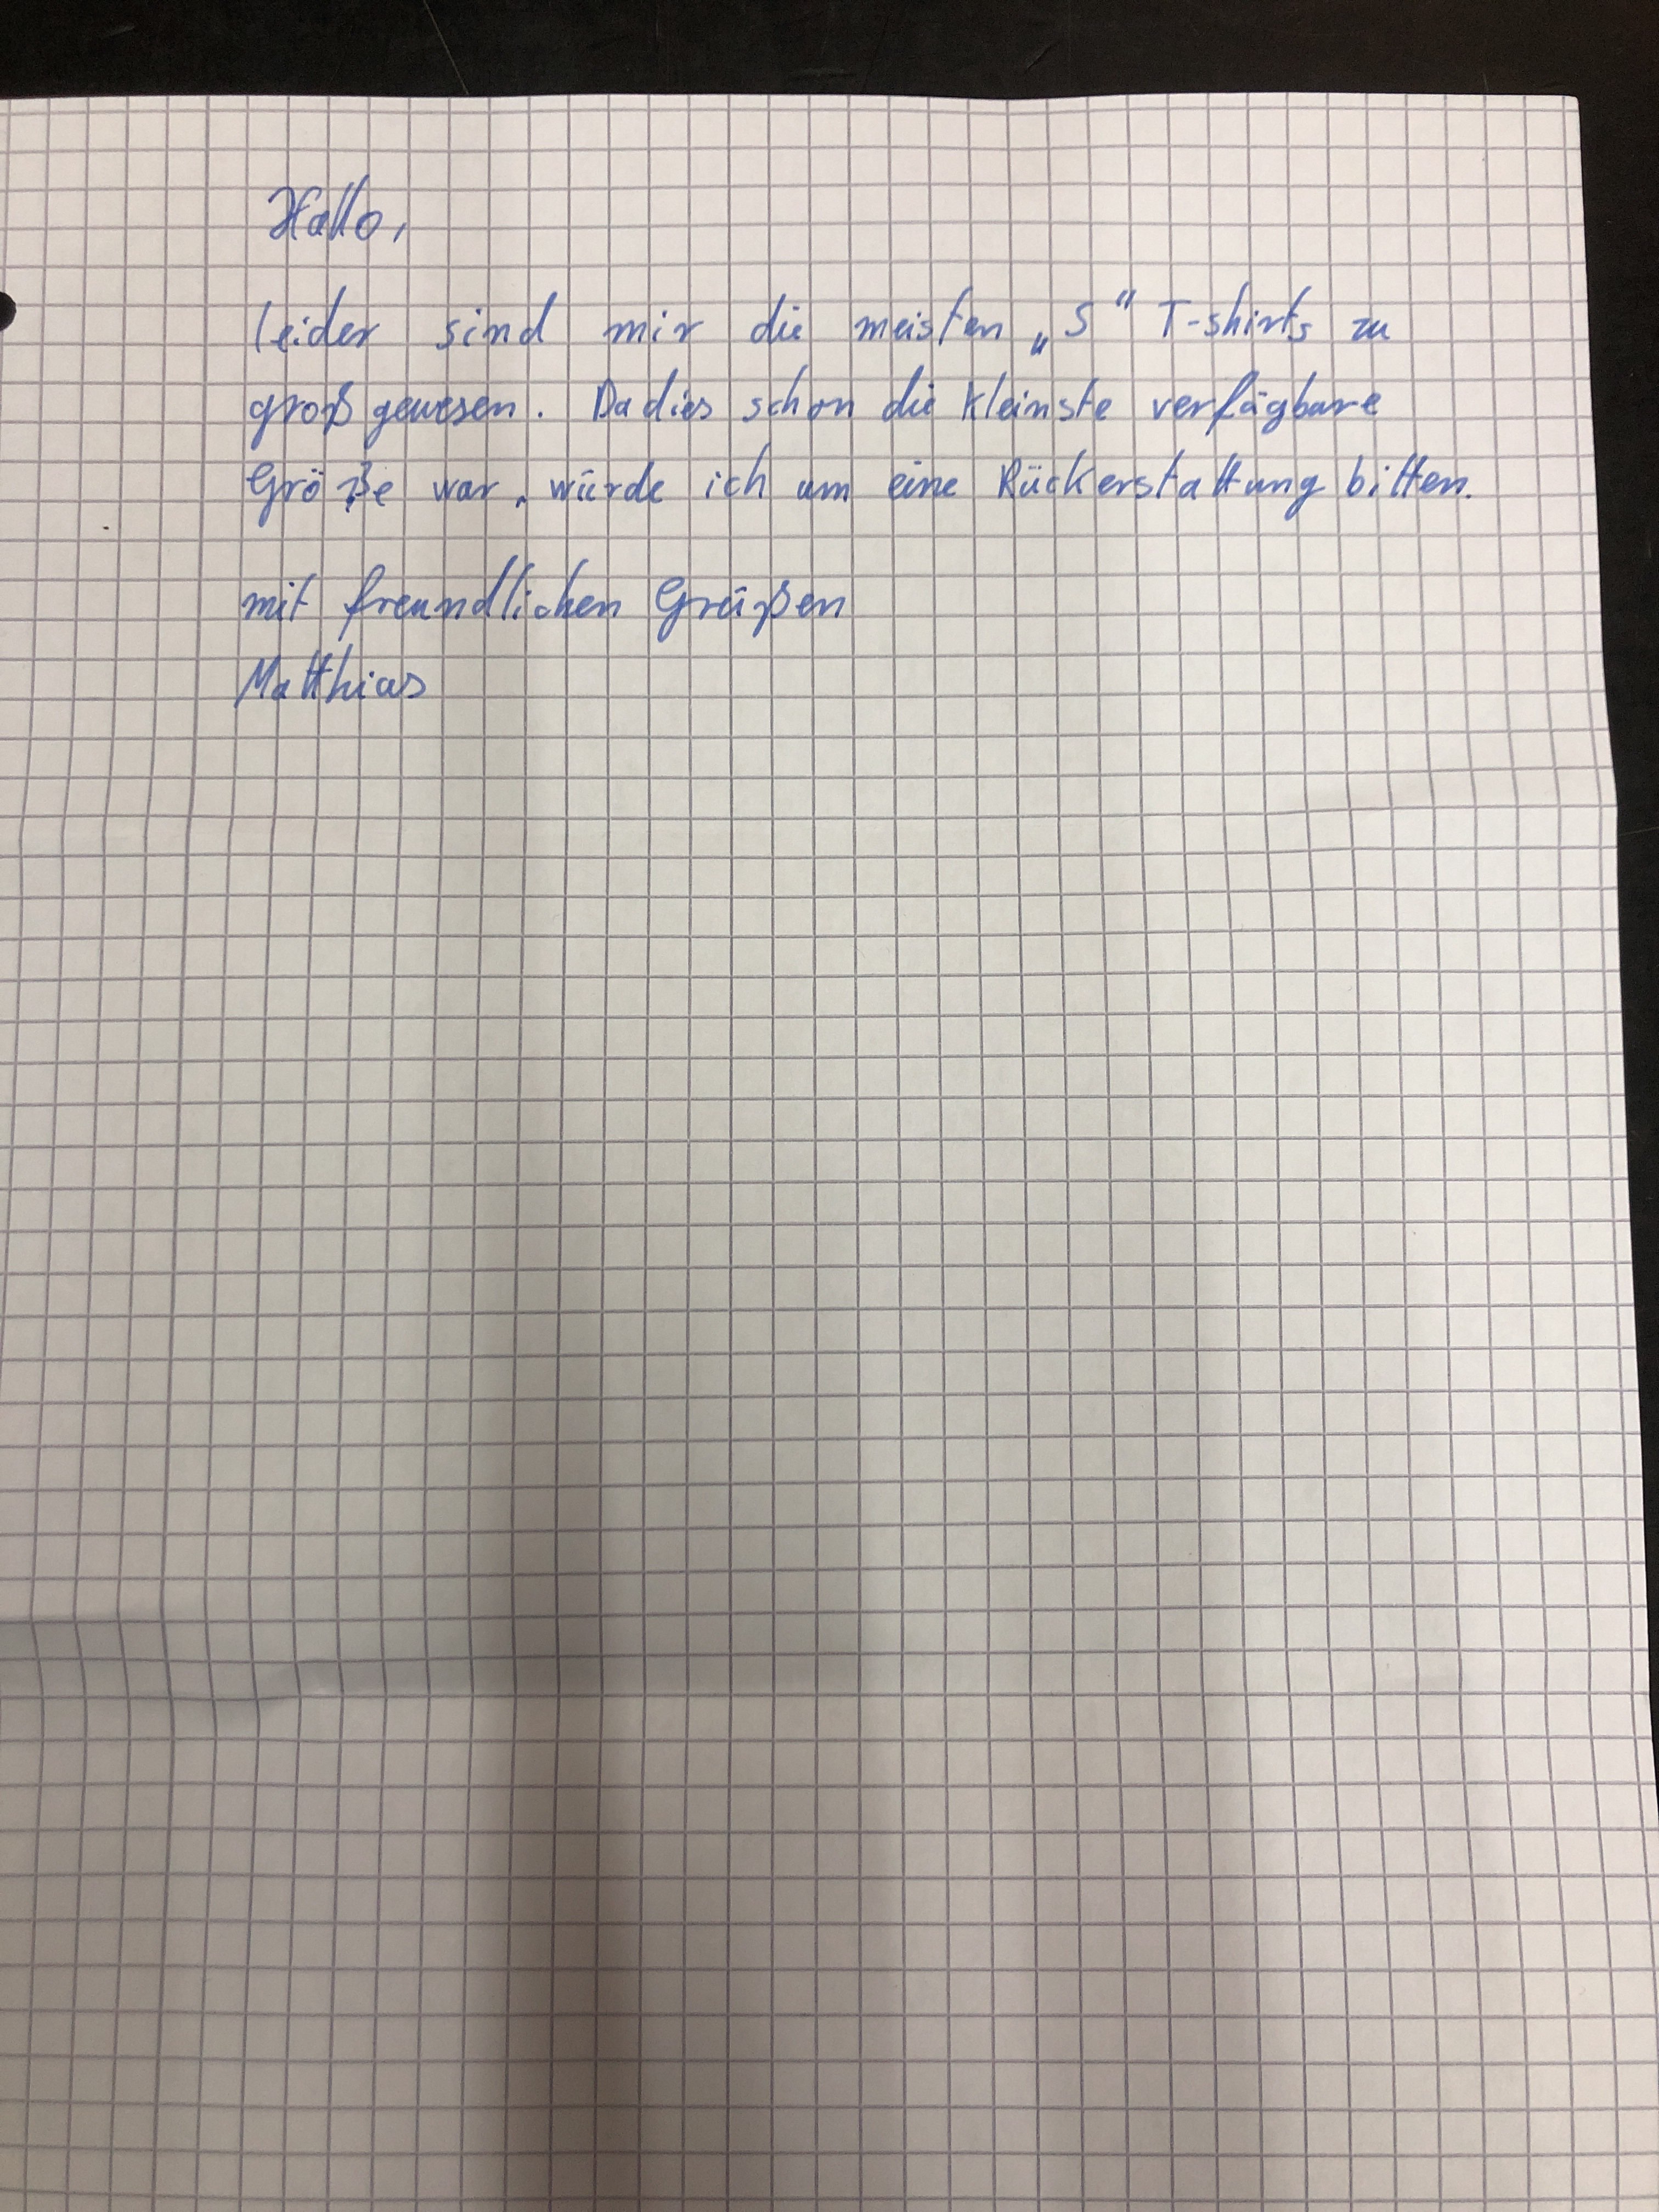 Hallo,
leider sind mir die meisten „S“ T-shirts zu
groß gewesen. Da dies schon die kleinste verfügbare
Größe war, würde ich um eine Rückerstattung bitten.
mit freundlichen Grüßen
Matthias